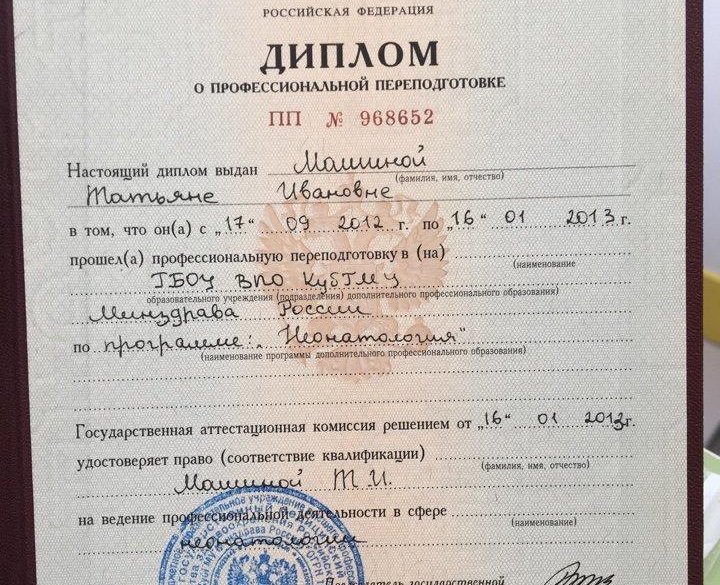 РОССИЙСКАЯ ФЕДЕРАЦИЯ
ДИПЛОМ
О ПРОФЕССИОНАЛЬНОЙ ПЕРЕПОДГОТОВКЕ
ПП № 968652
Настоящий диплом выдан Машиной
(фамилия, имя, отчество)
Татьяне Ивановне
в том, что он(а) с „17“ 09 2012 г. по „16“ 01 2013 г.
прошел(а) профессиональную переподготовку в (на)
(наименование
ГБОУ ВПО КубГМУ
образовательного учреждения (подразделения) дополнительного профессионального образования)
Минздрава России
по программе: „Неонатология“
(наименование программы дополнительного профессионального образования)
Государственная аттестационная комиссия решением от „16“ 01 2013г.
удостоверяет право (соответствие квалификации)
(фамилия, имя, отчество)
Машиной Т.И.
на ведение профессиональной деятельности в сфере
(наименование)
неонатологии
Председатель государственной